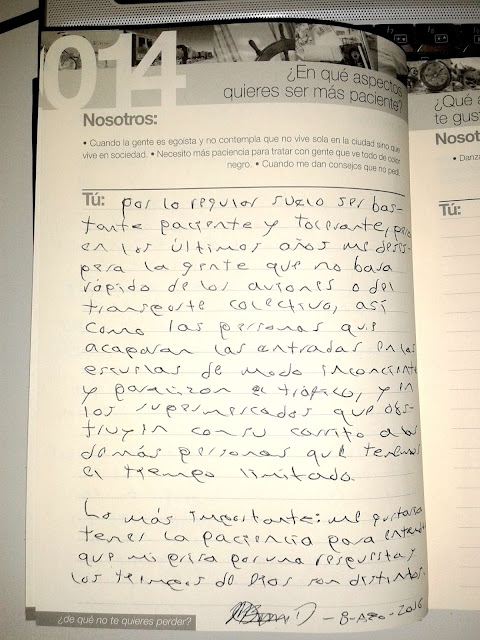 014
¿En qué aspectos
quieres ser más paciente?
Nosotros:
• Cuando la gente es egoista y no contempla que no vive sola en la ciudad sino que
vive en sociedad. • Necesito más paciencia para tratar con gente que ve todo de color
negro. • Cuando me dan consejos que no pedí.
Tú: por lo regular suelo ser bas-
tante paciente y tolerante, pero
en los últimos años me deses-
pera la gente que no baja
rápido de los aviones o del
transporte colectivo, así
como las personas que
acaparan las entradas en las
escuelas de modo inconciente
y paralizan el tráfico, y en
los supermercados que obs-
truyen con su carrito a las
demás personas que tenemos
el tiempo limitado.
Lo más importante: me gustaría
tener la paciencia para entender
que mi prisa por una respuesta y
los tiempos de Dios son distintos.
- 8-Ago-2016
¿de qué no te quieres perder?
¿Qué
te gus
Nosot
• Danza
Tú: